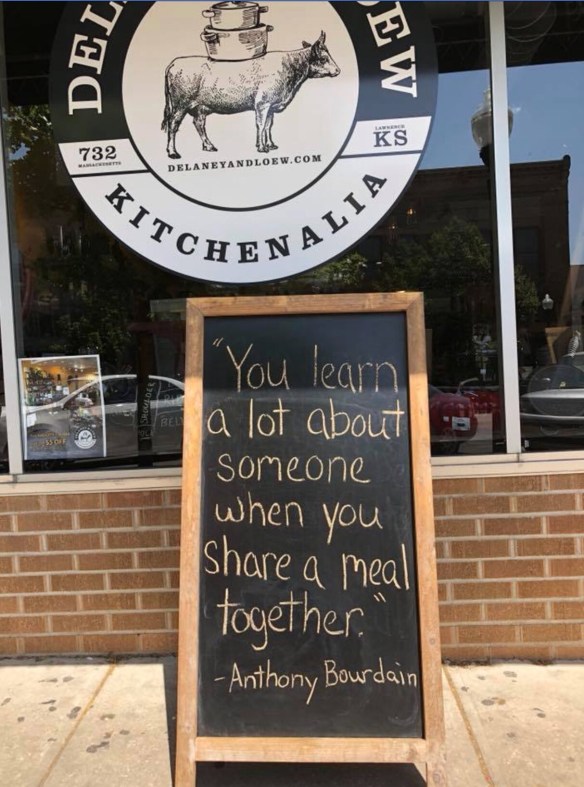 DEL
EW
732
MASSACHUSETTS
LAWRENCE
KS
DELANEYANDLOEW.COM
KITCHENALIA
"You learn
a lot about
someone
when you
share a meal
together."
-Anthony Bourdain
$5 OFF
SHOULDER